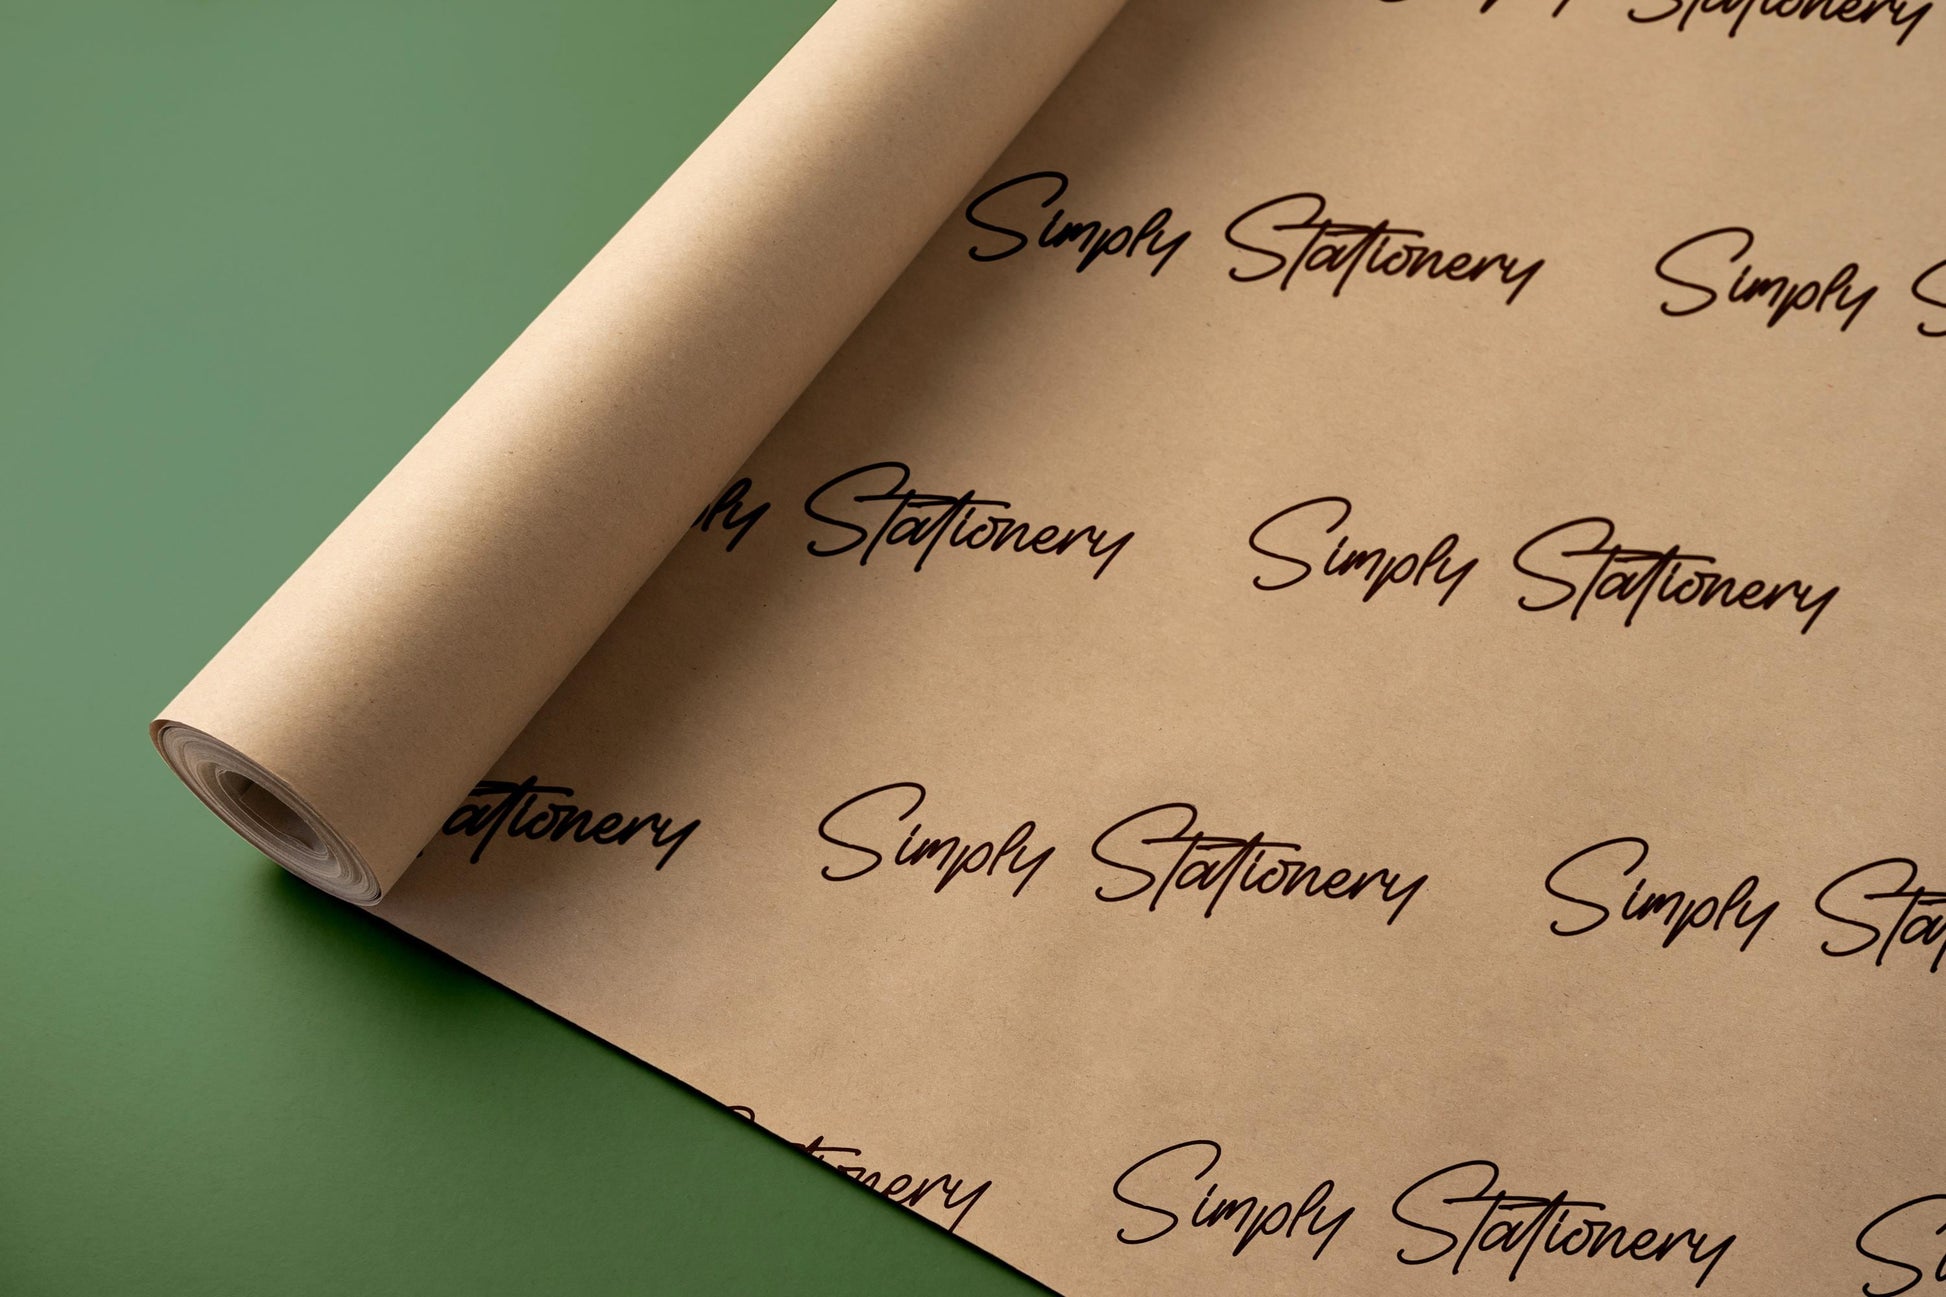 Stationery
Simply Stationery Simply
Stationery Simply Stationery
Simply Stationery Simply
Simply Stationery